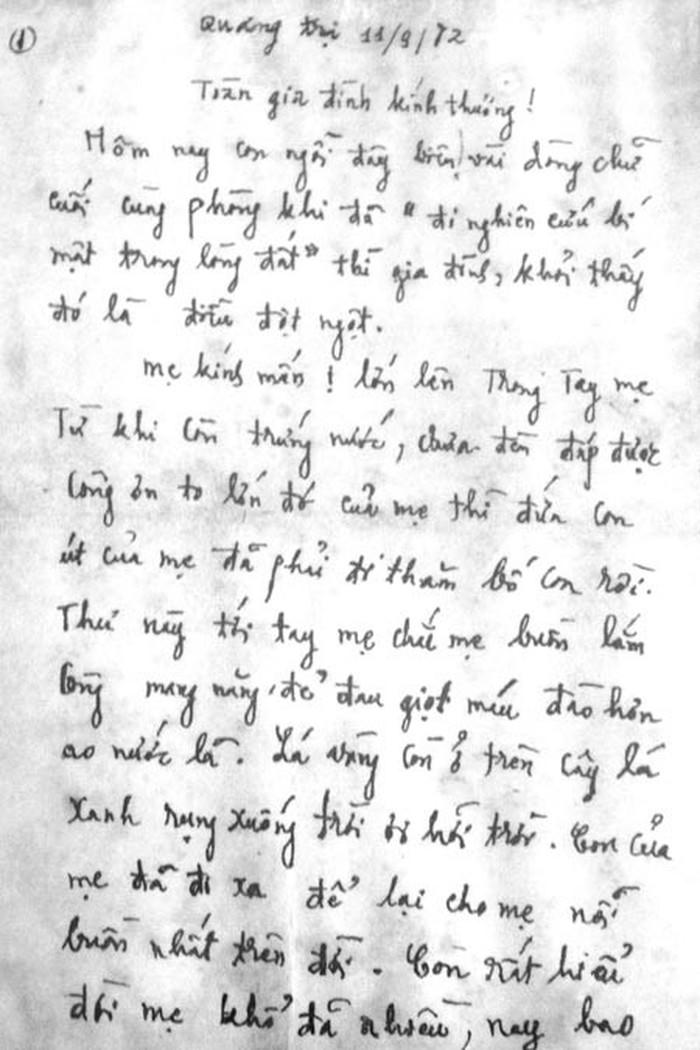 ①
Quảng trị 11/9/72
Toàn gia đình kính thương!
Hôm nay con ngồi đây viết vài dòng chữ
cuối cùng phòng khi đã "đi nghiên cứu bí
mật trong lòng đất" thì gia đình, khỏi thấy
đó là điều đột ngột.
mẹ kính mến! lớn lên Trong Tay mẹ
Từ khi còn trứng nước, chưa đền đáp được
Công ơn to lớn đó của mẹ thì đứa con
út của mẹ đã phải đi thăm bố con rồi.
Thư này tới tay mẹ chắc mẹ buồn lắm
Công mang nặng, đẻ đau giọt máu đào hơn
ao nước lã. Lá vàng còn ở trên cây lá
xanh rụng xuống trời ơi hỡi trời. Con của
mẹ đã đi xa để lại cho mẹ nỗi
buồn nhất trên đời. Con rất hiểu
đời mẹ khổ đã nhiều, nay bao